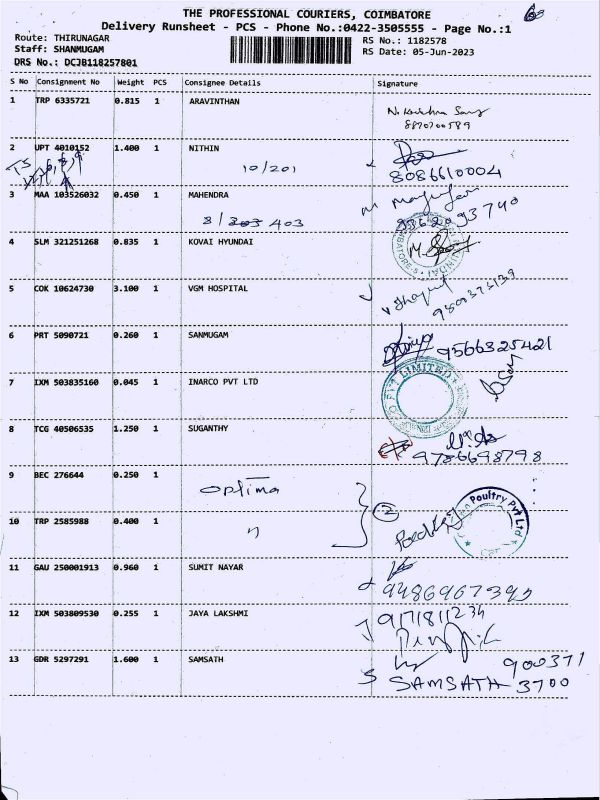 THE PROFESSIONAL COURIERS, COIMBATORE
Delivery Runsheet - PCS - Phone No.:0422-3505555 - Page No.:1
Route: THIRUNAGAR
Staff: SHANMUGAM
DRS No.: DCJB118257801
RS No.: 1182578
RS Date: 05-Jun-2023
S No Consignment No Weight PCS Consignee Details Signature
1 TRP 6335721 0.815 1 ARAVINTHAN
8870700589
2 UPT 4010152 1.400 1 NITHIN
10/201
8086610004
3 MAA 103526032 0.450 1 MAHENDRA
8/303 403
9362093740
4 SLM 321251268 0.835 1 KOVAI HYUNDAI
5 COK 10624730 3.100 1 VGM HOSPITAL
6 PRT 5090721 0.260 1 SANMUGAM
9566325421
7 IXM 503835160 0.045 1 INARCO PVT LTD
PVT LIMITED
8 TCG 40506535 1.250 1 SUGANTHY
9786698798
9 BEC 276644 0.250 1
Optima
2
10 TRP 2585988 0.400 1
"
Poultry Pvt Ltd
11 GAU 250001913 0.960 1 SUMIT NAYAR
12 IXM 503809530 0.255 1 JAYA LAKSHMI
9171811234
13 GDR 5297291 1.600 1 SAMSATH
900371
SAMSATH 3700